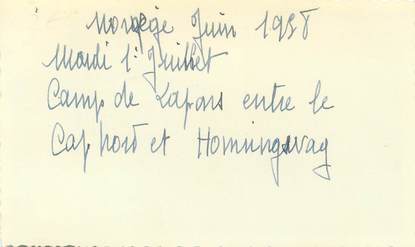 Norvège Juin 1958
Mardi 1er Juillet
Camp de Lapons entre le
Cap nord et Honningsvag